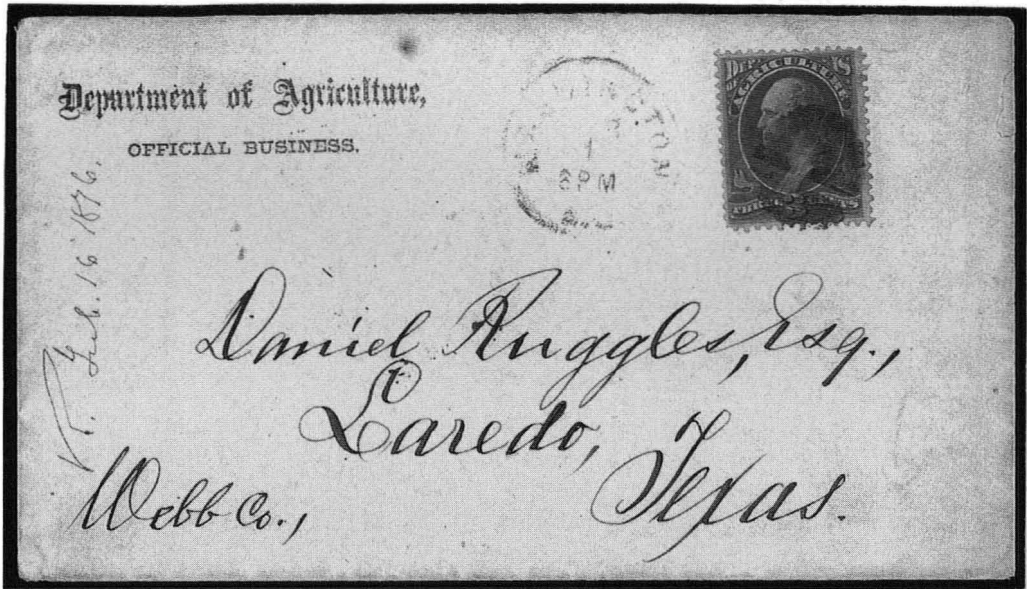 Department of Agriculture,
OFFICIAL BUSINESS.
WASHINGTON
1
6 PM
DEPT
AGRICULTURE
THREE 3 CENTS
Feb. 16 1876.
Daniel Ruggles, Esq.,
Laredo,
Webb Co.,
Texas.